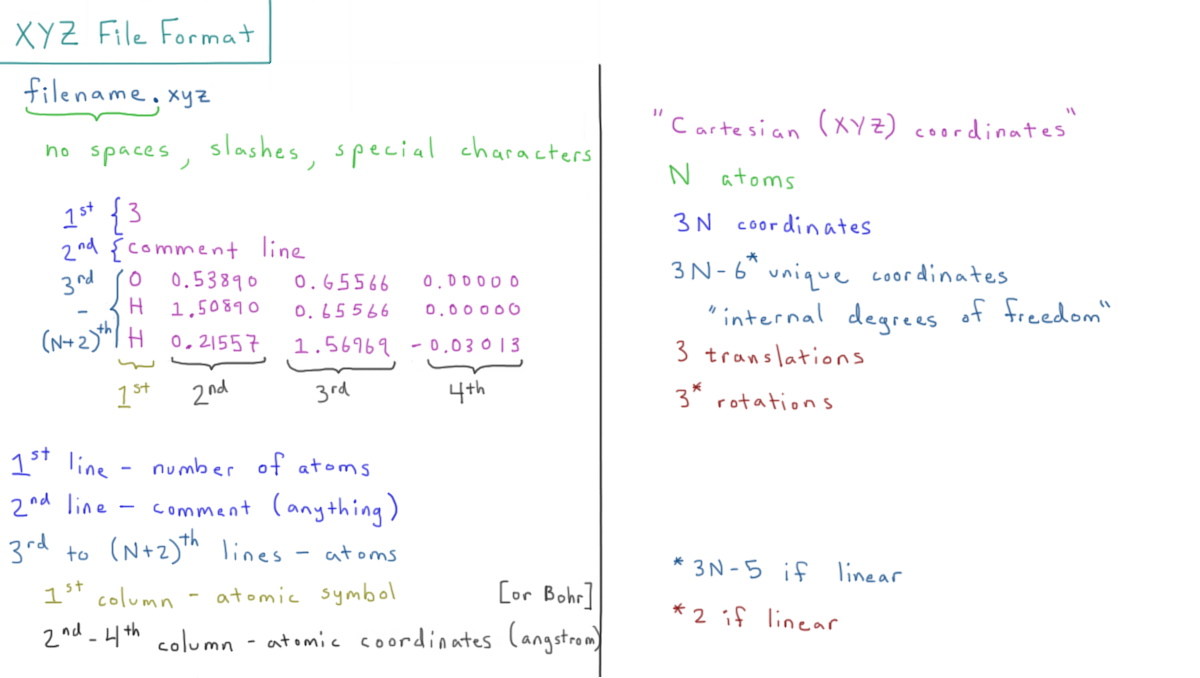 XYZ File Format
filename.xyz
no spaces, slashes, special characters
1st {3
2nd {comment line
3rd { O 0.53890 0.65566 0.00000
- H 1.50890 0.65566 0.00000
(N+2)th H 0.21557 1.56969 -0.03013
1st 2nd 3rd 4th
1st line - number of atoms
2nd line - comment (anything)
3rd to (N+2)th lines - atoms
1st column - atomic symbol [or Bohr]
2nd-4th column - atomic coordinates (angstrom)
"Cartesian (XYZ) coordinates"
N atoms
3N coordinates
3N-6* unique coordinates
"internal degrees of freedom"
3 translations
3* rotations
* 3N-5 if linear
* 2 if linear